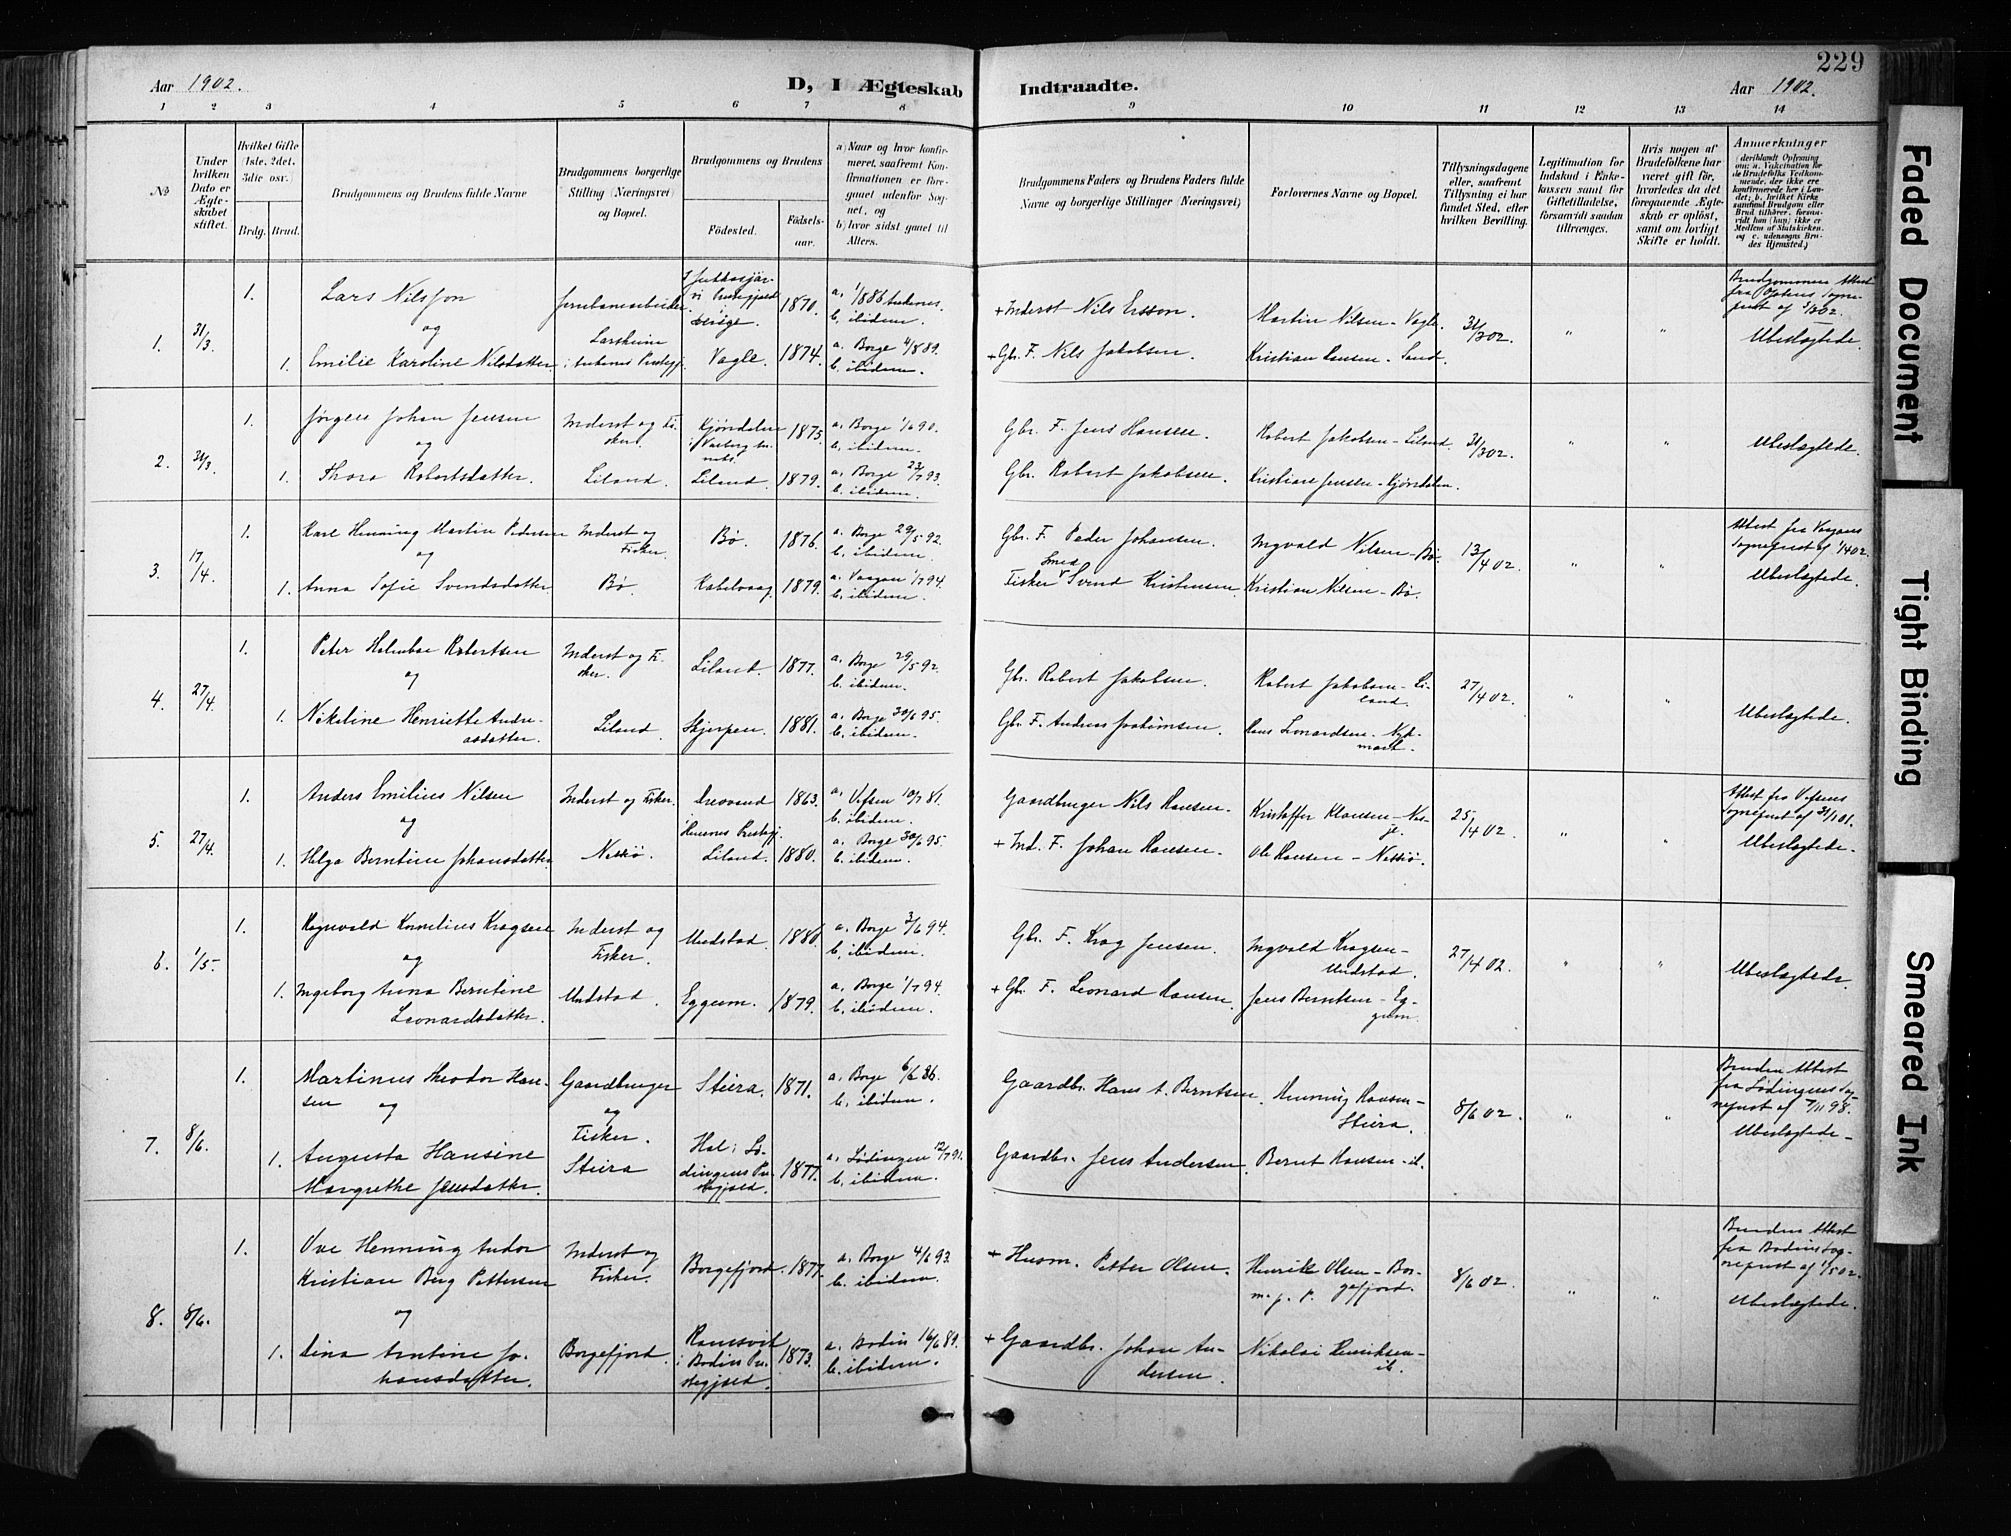 229
Aar 1902.
D, I Ægteskab Indtraadte.
Aar 1902.
1 2 3 4 5 6 7 8 9 10 11 12 13 14
№
Under hvilken Dato er Ægteskabet stiftet.
Hvilket Gifte (1ste, 2det, 3die osv.)
Brdg. Brud.
Brudgommens og Brudens fulde Navne
Brudgommens borgerlige Stilling (Næringsvei) og Bopæl.
Brudgommens og Brudens
Födested. Födsels-aar.
a) Naar og hvor konfirmeret, saafremt Konfirmationen er foregaaet udenfor Sognet, og
b) hvor sidst gaaet til Alters.
Brudgommens Faders og Brudens Faders fulde Navne og borgerlige Stillinger (Næringsvei)
Forlovernes Navne og Bopæl.
Tillysningsdagene eller, saafremt Tillysning ei har fundet Sted, efter hvilken Bevilling.
Legitimation for Indskud i Enkekassen samt for Giftetilladelse, forsaavidt saadan tiltrænges.
Hvis nogen af Brudefolkene har været gift før, hvorledes da det foregaaende Ægteskab er opløst, samt om lovligt Skifte er holdt.
Anmærkninger
1. 31/3
1. Lars Nilsson 1870. b. ibidem. + Inderst Nils Ersson. Martin Nilsen - Vagle. 31/3 02. " "
og
1. Emilie Karoline Nilsdatter Vagle. 1874. a. Borge 4/8 89. b. ibidem. + Gbr. F. Nils Jakobsen. Kristian Hansen - Sand. Ubeslægtede.
2. 31/3
1. Jørgen Johan Jensen Inderst og Fisker. 1875. a. Borge 1/6 90. b. ibidem. Gbr. F. Jens Hansen. Robert Jakobsen - Liland. 31/3 02. " " Ubeslægtede.
og
1. Thora Robertsdatter. Liland. Liland. 1879. a. Borge 23/7 93. b. ibidem. Gbr. Robert Jakobsen. Kristian Jensen - Kjøndalen.
3. 17/4.
1. Karl Henning Martin Pedersen Inderst og Fisker. Bø. 1876. a. Borge 29/5 92. b. ibidem. Gbr. F. Peder Johansen. Ingvald Nilsen - Bø. 13/4 02. " " Attest fra Vaagans Sogneprest af 1/4 02.
og
1. Anna Sofie Svendsdatter. Bø. Kabelvaag. 1879. a. Vaagan 1/7 94. b. ibidem. Smed Fisker Svend Kristensen. Kristian Nilsen - Bø. Ubeslægtede.
4. 27/4.
1. Peter Holmboe Robertsen Inderst og Fisker. Liland. 1877. a. Borge 29/5 92. b. ibidem. Gbr. Robert Jakobsen. Robert Jakobsen - Liland. 27/4 02. " "
og
1. Nikoline Henriette Andreasdatter. Liland. Skjerpen. 1881. a. Borge 30/6 95. b. ibidem. Gbr. F. Andreas Joakimsen. Hans Leonardsen - Ubeslægtede.
5. 27/4.
1. Anders Emilius Nilsen Inderst og Fisker. 1863. a. Vefsen 10/7 81. b. ibidem. Gaardbruger Nils Hansen. Kristoffer Klausen - 25/4 02. " " Attest fra Vefsens Sogneprest af 31/1 01.
og
1. Helga Berntine Johansdatter. Liland. 1880. a. Borge 30/6 95. b. ibidem. + Ind. F. Johan Hansen. Ole Hansen - Ubeslægtede.
6. 1/5.
1. Ragnvald Kornelius Kragsen Inderst og Fisker. Unstad. 1880. a. Borge 3/6 94. b. ibidem. Gbr. F. Krag Jensen. Ingvald Kragsen - Unstad. 27/4 02. " "
og
1. Ingeborg Anna Berntine Leonardsdatter. Unstad. Eggum. 1879. a. Borge 1/7 94. b. ibidem. + Gbr. F. Leonard Hansen. Jens Berntsen - Eggum. Ubeslægtede.
7. 8/6.
1. Martinus Theodor Hansen Gaardbruger og Fisker. Steira. 1871. a. Borge 6/6 86. b. ibidem. Gaardbr. Hans A. Berntsen. Henning Hansen - Steira. 8/6 02. " " Brudens Attest fra Lødingens Sogneprest af 7/11 98.
og
1. Augusta Hansine Margrethe Jensdatter. Steira Hol i Lødingens Prestegjeld. 1877. a. Lødingen 12/7 91. b. ibidem. Gaardbr. Jens Andersen. Bernt Hansen - ib. Ubeslægtede -
8. 8/6.
1. Ove Henning Andor Kristian Berg Pettersen Inderst og Fisker. Borgefjord. 1877. a. Borge 4/6 93. b. ibidem. + Husm. Petter Olsen. Henrik Olsen - Borgefjord. m. p. P. 8/6 02. " " Brudens Attest fra Bodins Sogneprest af 1/5 02.
og
1. Lina Antine Johansdatter. Borgefjord. i Bodins Prestegjeld. 1873. a. Bodin 16/6 89. b. ibidem. + Gaardbr. Johan Andersen. Nikolai Henriksen - ib. Ubeslægtede.
Faded Document
Tight Binding
Smeared Ink